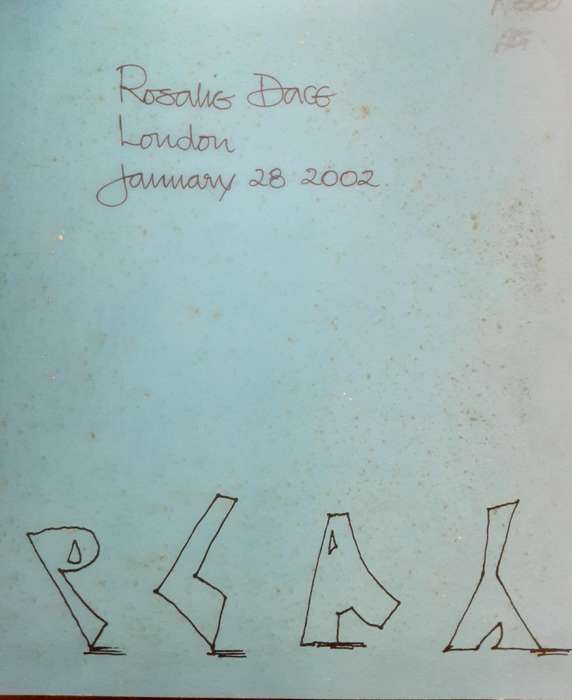 Rosalie Dace
London
January 28 2002
PLAY